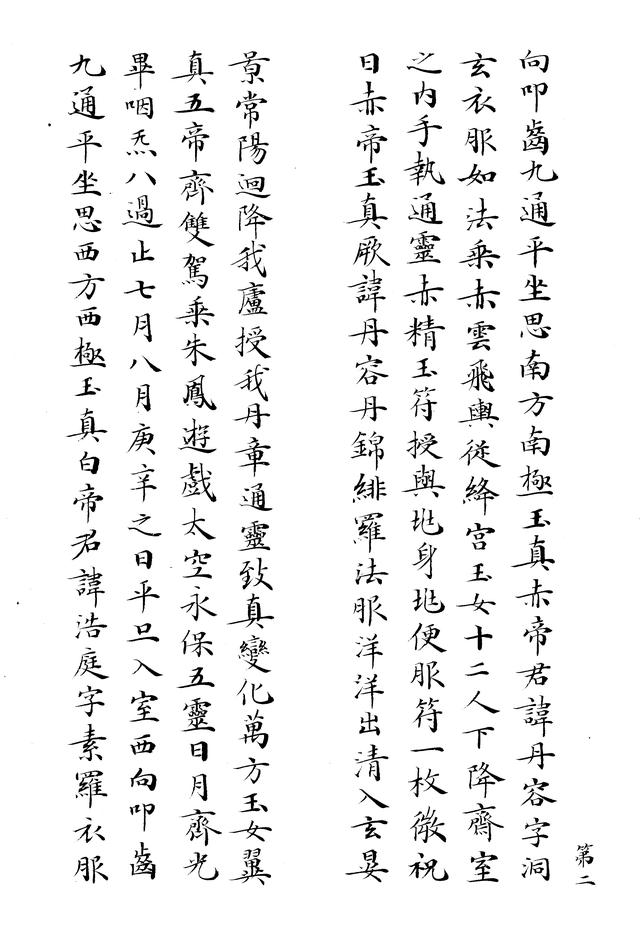 第二
向叩齒九通平坐思南方南極玉真赤帝君諱丹容字洞
玄衣服如法乘赤雲飛輿從絳宮玉女十二人下降齋室
之内手執通靈赤精玉符授與兆身兆便服符一枚微祝
曰赤帝玉真厥諱丹容丹錦緋羅法服洋洋出清入玄晏
景常陽迴降我廬授我丹章通靈致真變化萬方玉女翼
真五帝齊雙駕乘朱鳳遊戲太空永保五靈日月齊光
畢咽炁八過止七月八月庚辛之日平旦入室西向叩齒
九通平坐思西方西極玉真白帝君諱浩庭字素羅衣服